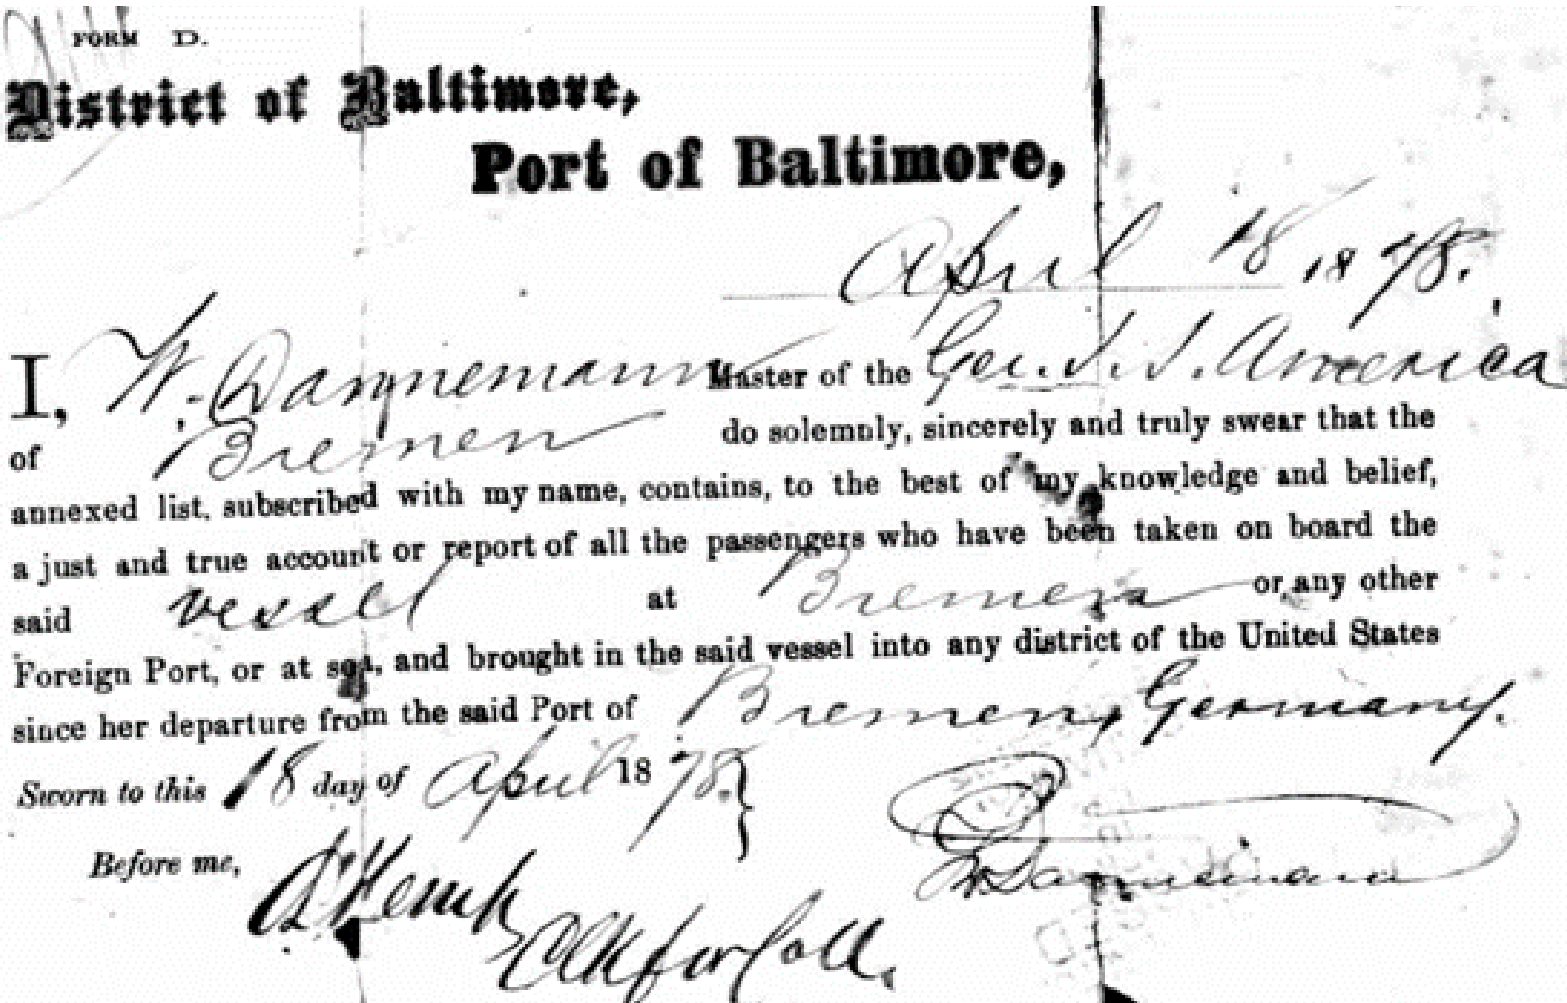 FORM D.
District of Baltimore,
Port of Baltimore,
April 18 1878.
I, W. Dannemann Master of the Ger. S. S. America
of Bremen do solemnly, sincerely and truly swear that the
annexed list, subscribed with my name, contains, to the best of my knowledge and belief,
a just and true account or report of all the passengers who have been taken on board the
said vessel at Bremen or any other
Foreign Port, or at sea, and brought in the said vessel into any district of the United States
since her departure from the said Port of Bremen, Germany.
Sworn to this 18 day of April 1878.
Before me,
W Dannemann
Clk for Coll.